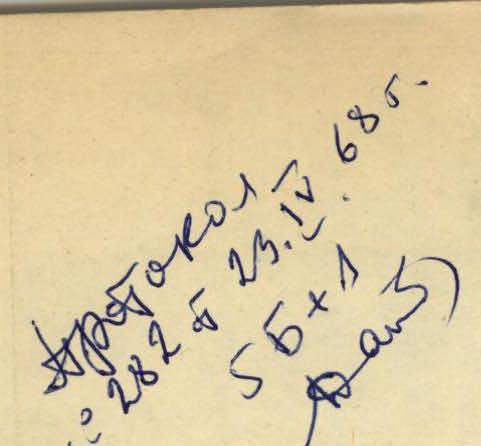 Протокол
№ 282 от 23.IV.68 г.
5Б х 1